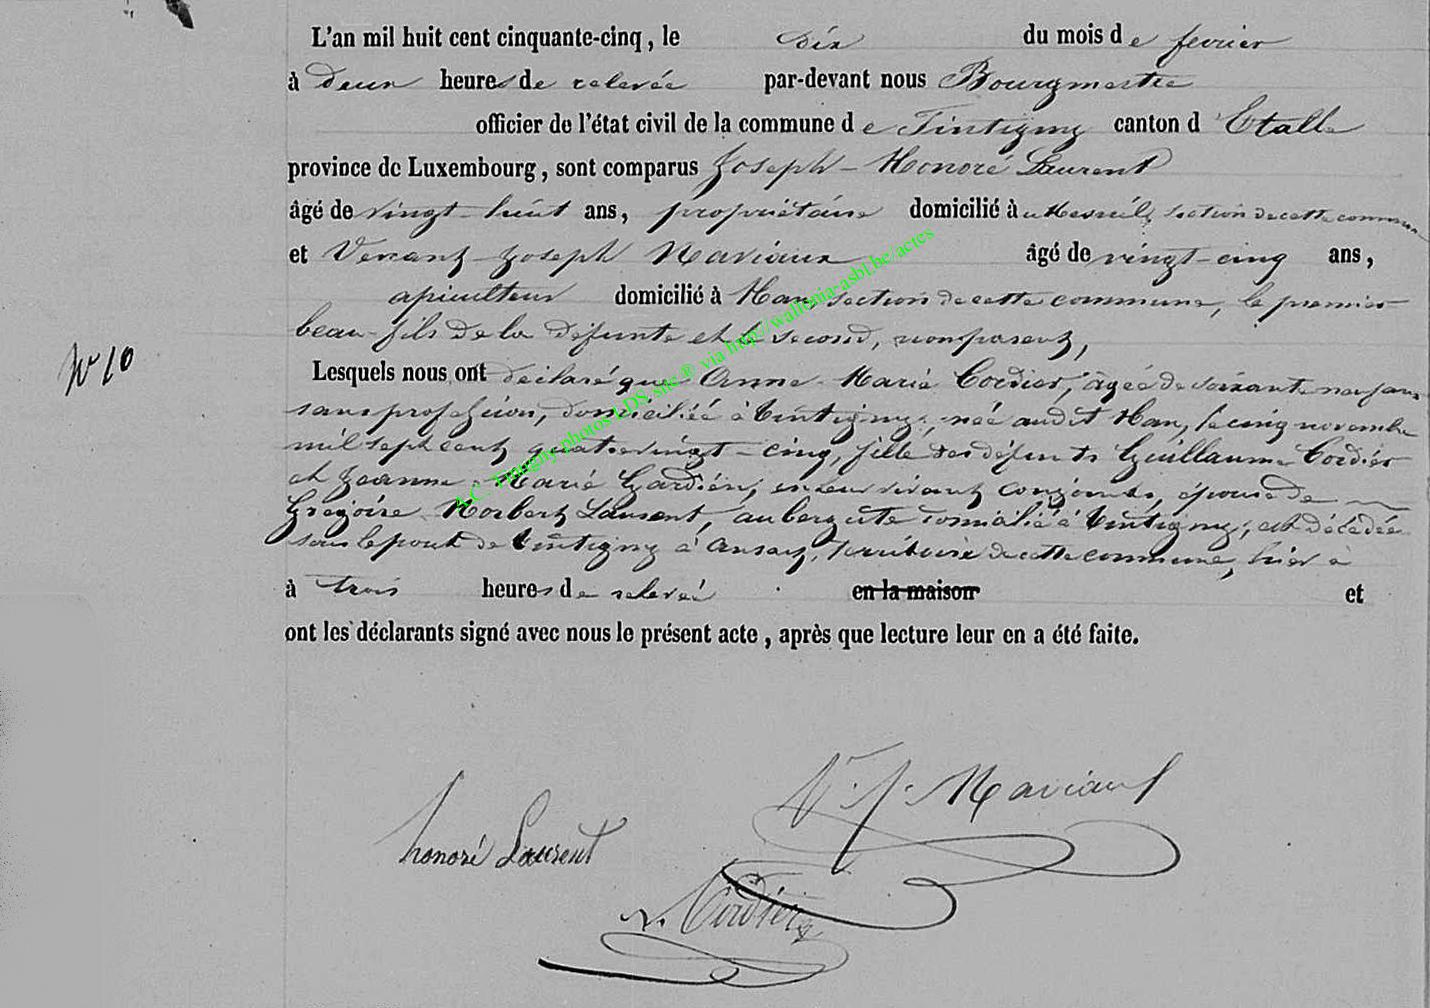 L'an mil huit cent cinquante-cinq, le dix du mois de fevrier
à deux heures de relevée par-devant nous Bourgmestre
officier de l'état civil de la commune de Tintigny canton d Etalle
province de Luxembourg, sont comparus Joseph-Honoré Laurent
âgé de vingt-huit ans, propriétaire domicilié à section de cette commune
et Joseph Naviaux âgé de vingt-cinq ans,
domicilié à Han, section de cette commune, le premier
beau-fils de la défunte et le second, non parent,
N° 10
Lesquels nous ont déclaré que Anne-Marie Cordier, âgée de soixante neuf ans
sans profession, domiciliée à Tintigny, née audit Han, le cinq novembre
mil sept cent quatre vingt-cinq, fille des défunts Guillaume Cordier
et Jeanne-Marie Gardien, en leur vivant conjoints, épouse de
Grégoire Norbert Laurent, aubergiste domicilié à Tintigny, est décédée
sous le pont de Tintigny à Ansart, territoire de cette commune, hier à
à trois heures de relevée en la maison et
ont les déclarants signé avec nous le présent acte, après que lecture leur en a été faite.
V. J. Naviaux
honoré Laurent
N. Cordier
A.C. Tintigny photos LDS site ® via http://wallonia-asbl.be/actes